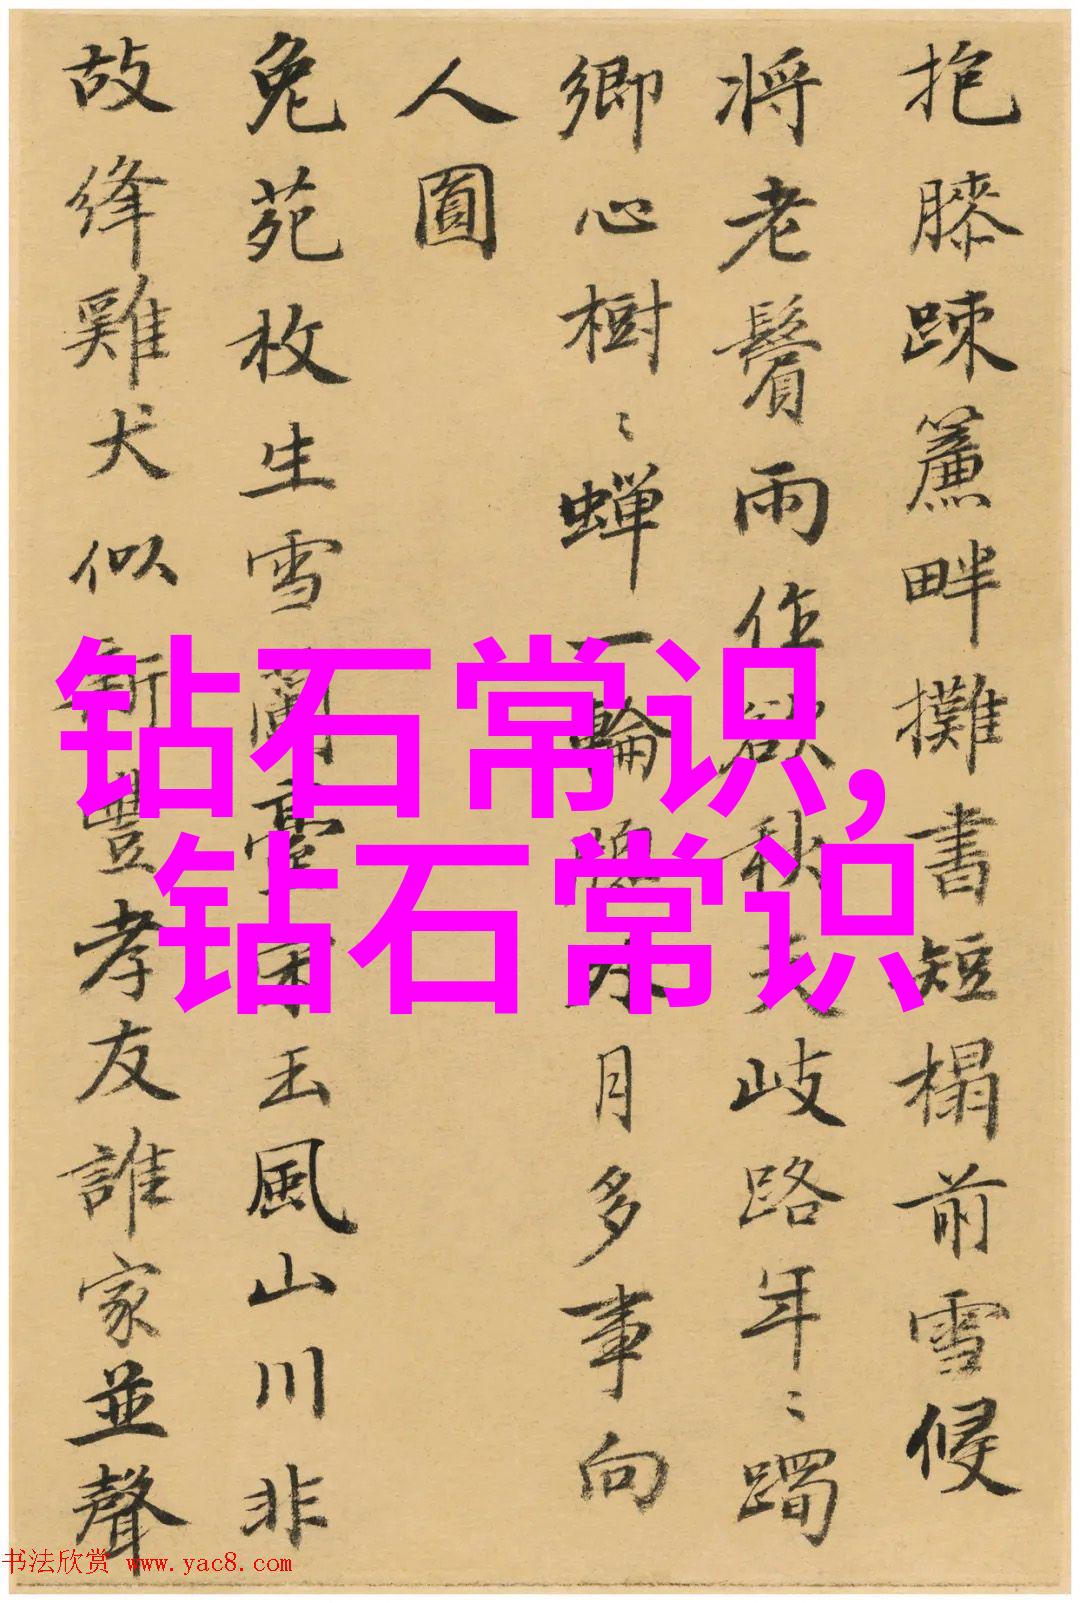 抱膝踈簾畔攤書短榻前雪侵
将老鬢雨作欲秋天岐路年〻躅
鄉心樹〻蟬一輪隄外月多事向
人圓
兔苑枚生雪蘭臺宋玉風山川非
故絳雞犬似新豐孝友誰家並聲
钻石常识,
钻石常识
书法欣赏 www.yac8.com